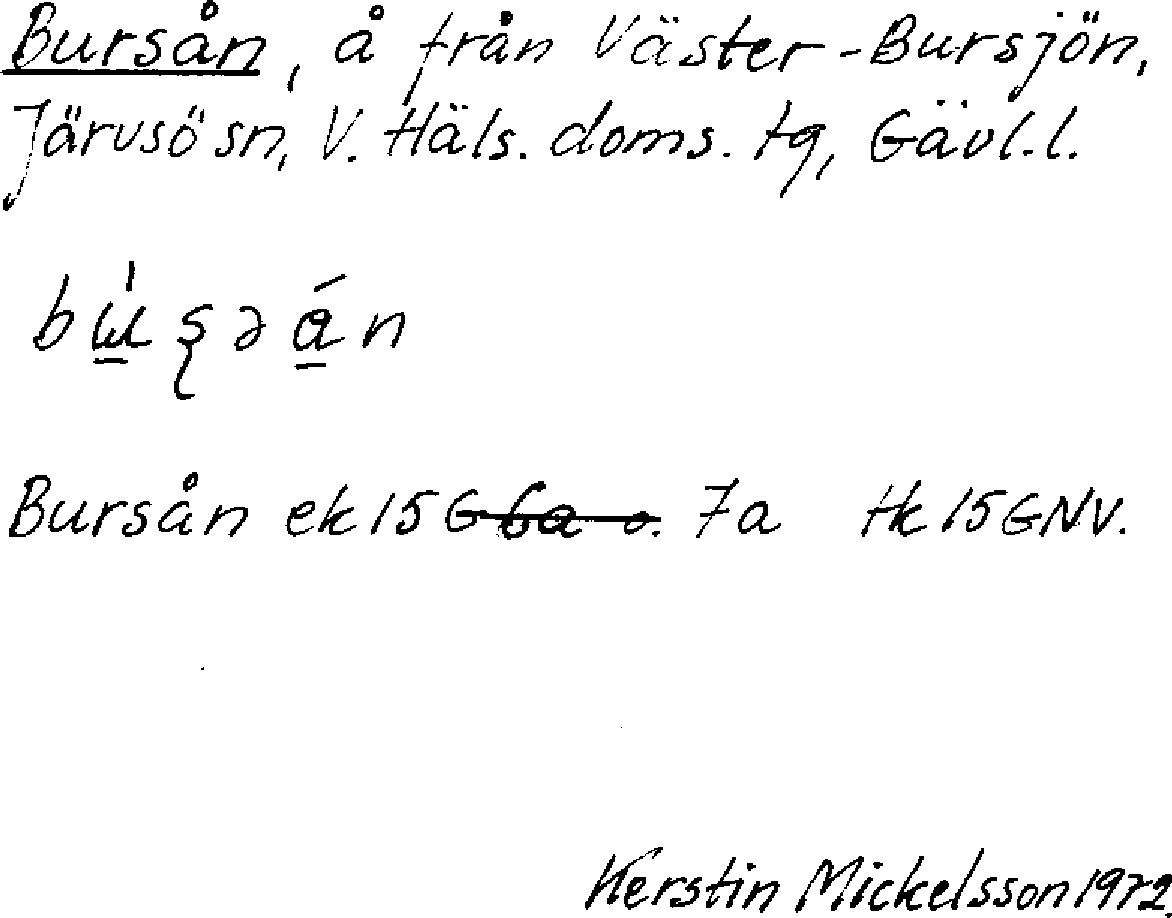 Bursån, å från Väster-Bursjön,
Järvsö sn, V. Häls. doms. tg, Gävl.l.
Bursån ek 15 G 6a o. 7a Hk 15 GNV.
Kerstin Mickelsson 1972